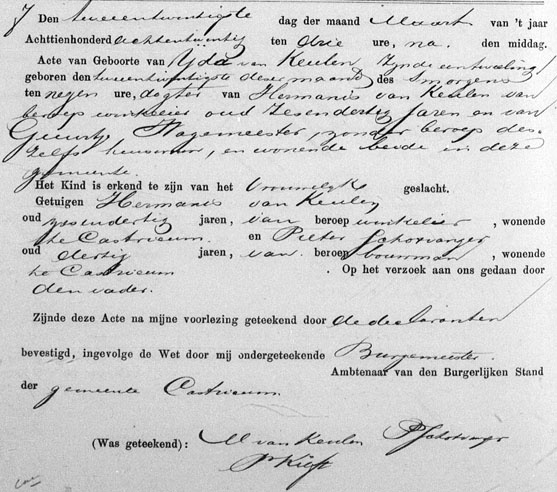 Den tweeentwintigste dag der maand Maart van 't jaar
Achttienhonderd achtentwintig ten drie ure, na. den middag.
Acte van Geboorte van IJda van Keulen zynde eentweeling
geboren den tweeentwintigste deser maand des smorgens
ten negen ure, dogter van Hermanis van Keulen van
beroep winkelier oud zesendertig jaren en van
Guurtje Wagemeester, zonder beroep des-
zelfs huisvrouw, en wonende beide in deze
gemeente.
Het Kind is erkend te zijn van het vrouwelyk geslacht.
Getuigen Hermanis van Keulen
oud zesendertig jaren, van beroep winkelier, wonende
te Castricum. en Pieter Schotvanger
oud dertig jaren, van. beroep bouwman, wonende
te Castricum. Op het verzoek aan ons gedaan door
den vader.
Zijnde deze Acte na mijne voorlezing geteekend door de declaranten
bevestigd, ingevolge de Wet door mij ondergeteekende Burgemeester.
Ambtenaar van den Burgerlijken Stand
der gemeente Castricum.
(Was geteekend): van Keulen PSchotvanger
Kieft